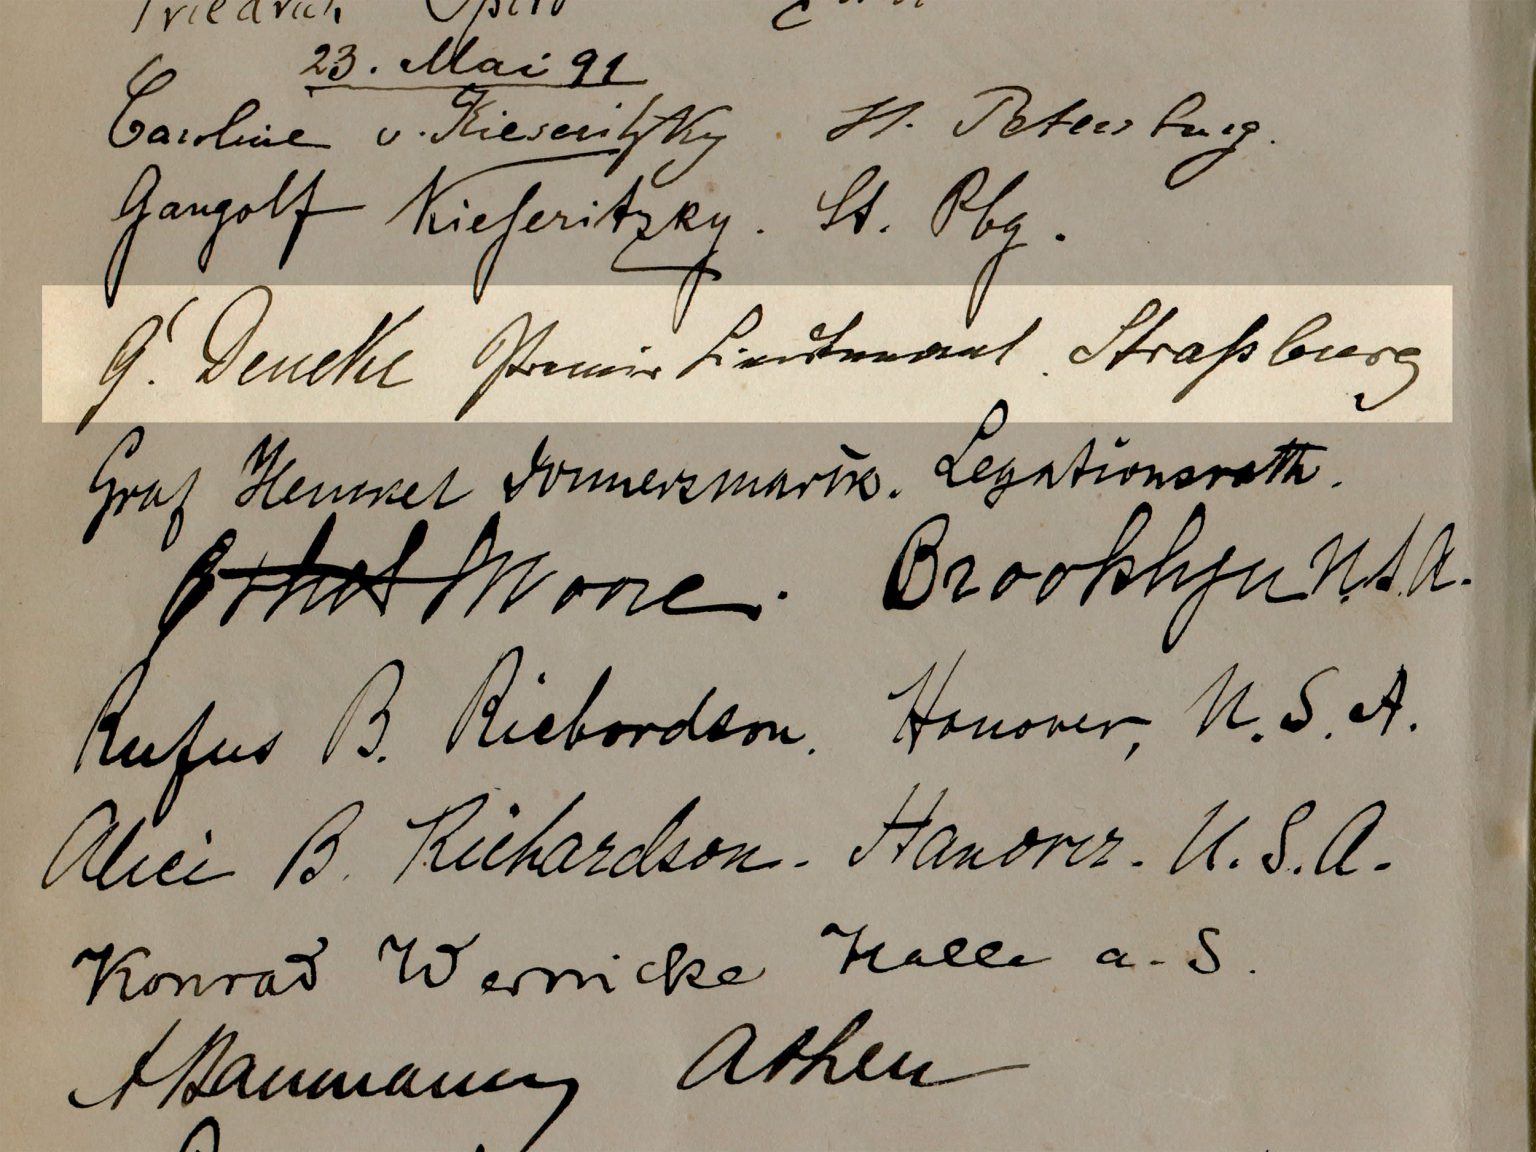 Friedrich
23. Mai 91
Caroline v. Kieseritzky. St. Petersburg.
Gangolf Kieseritzky. St. Pbg.
G. Deneke Premier Lieutenant. Straßburg
Graf Henckel Donnersmarck. Legationsrath.
Ethel Moore. Brooklyn U.S.A.
Rufus B. Richardson. Hanover, U.S.A.
Alice B. Richardson. Hanover. U.S.A.
Konrad Wernicke Halle a. S.
A Baumann Athen